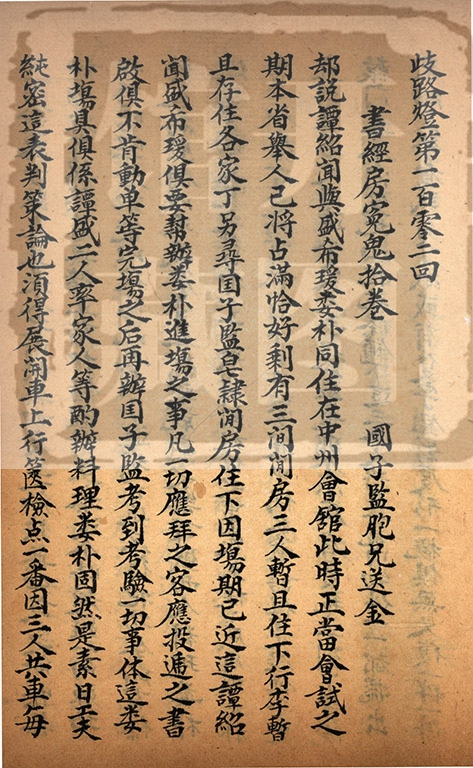 歧路燈第一百零二回
書經房冤鬼拾卷　國子監胞兄送金
却説譚紹聞與盛希瑗娄朴同住在中州會舘此時正當會試之
期本省舉人已將占滿恰好剩有三间闲房三人暫且住下行李暫
且存住各家丁另尋国子監皂隸閒房住下因塲期已近這譚紹
闻盛布瑗俱要討辦娄朴進塲之事凡一切應拜之客應投逓之書
啟俱不肯動单等完塲之后再辦国子監考到考驗一切事体這娄
朴塲具俱係譚盛二人率家人等酌辦料理娄朴固然是素日工夫
純密這表判策論也湏得展開車上行箧檢点一番因三人共車每